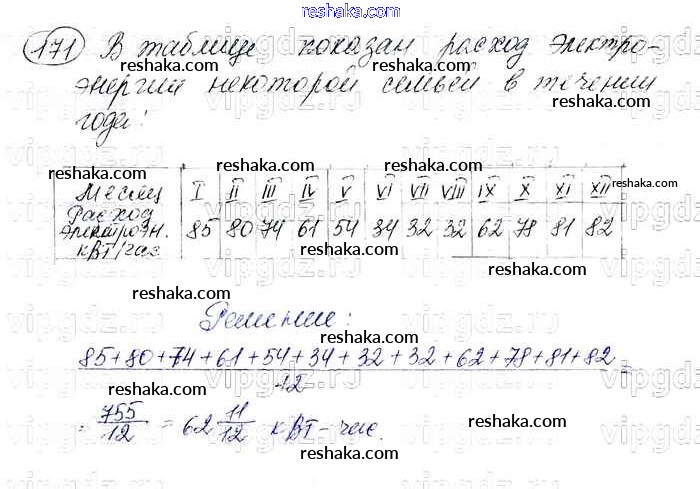 reshaka.com
171 В таблице показан расход электро-
reshaka.com
энергии некоторой семьей в течении
reshaka.com
года:
reshaka.com reshaka.com
Месяц I II III IV V VI VII VIII IX X XI XII
Расход электроэн. кВт/час 85 80 74 61 54 34 32 32 62 78 81 82
reshaka.com
reshaka.com
reshaka.com
Решение:
reshaka.com
85+80+74+61+54+34+32+32+62+78+81+82
12 =
reshaka.com
reshaka.com reshaka.com
= 755/12 = 62 11/12 кВт-час.
reshaka.com
reshaka.com